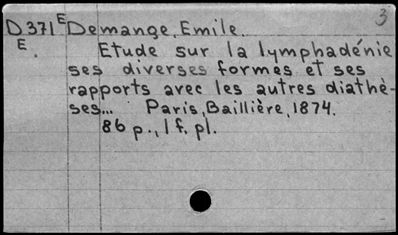 3
D371 E Demange, Emile.
E. Etude sur la lymphadénie
ses diverses formes et ses
rapports avec les autres diathè-
ses... Paris, Baillière, 1874.
86 p., 1 f. pl.